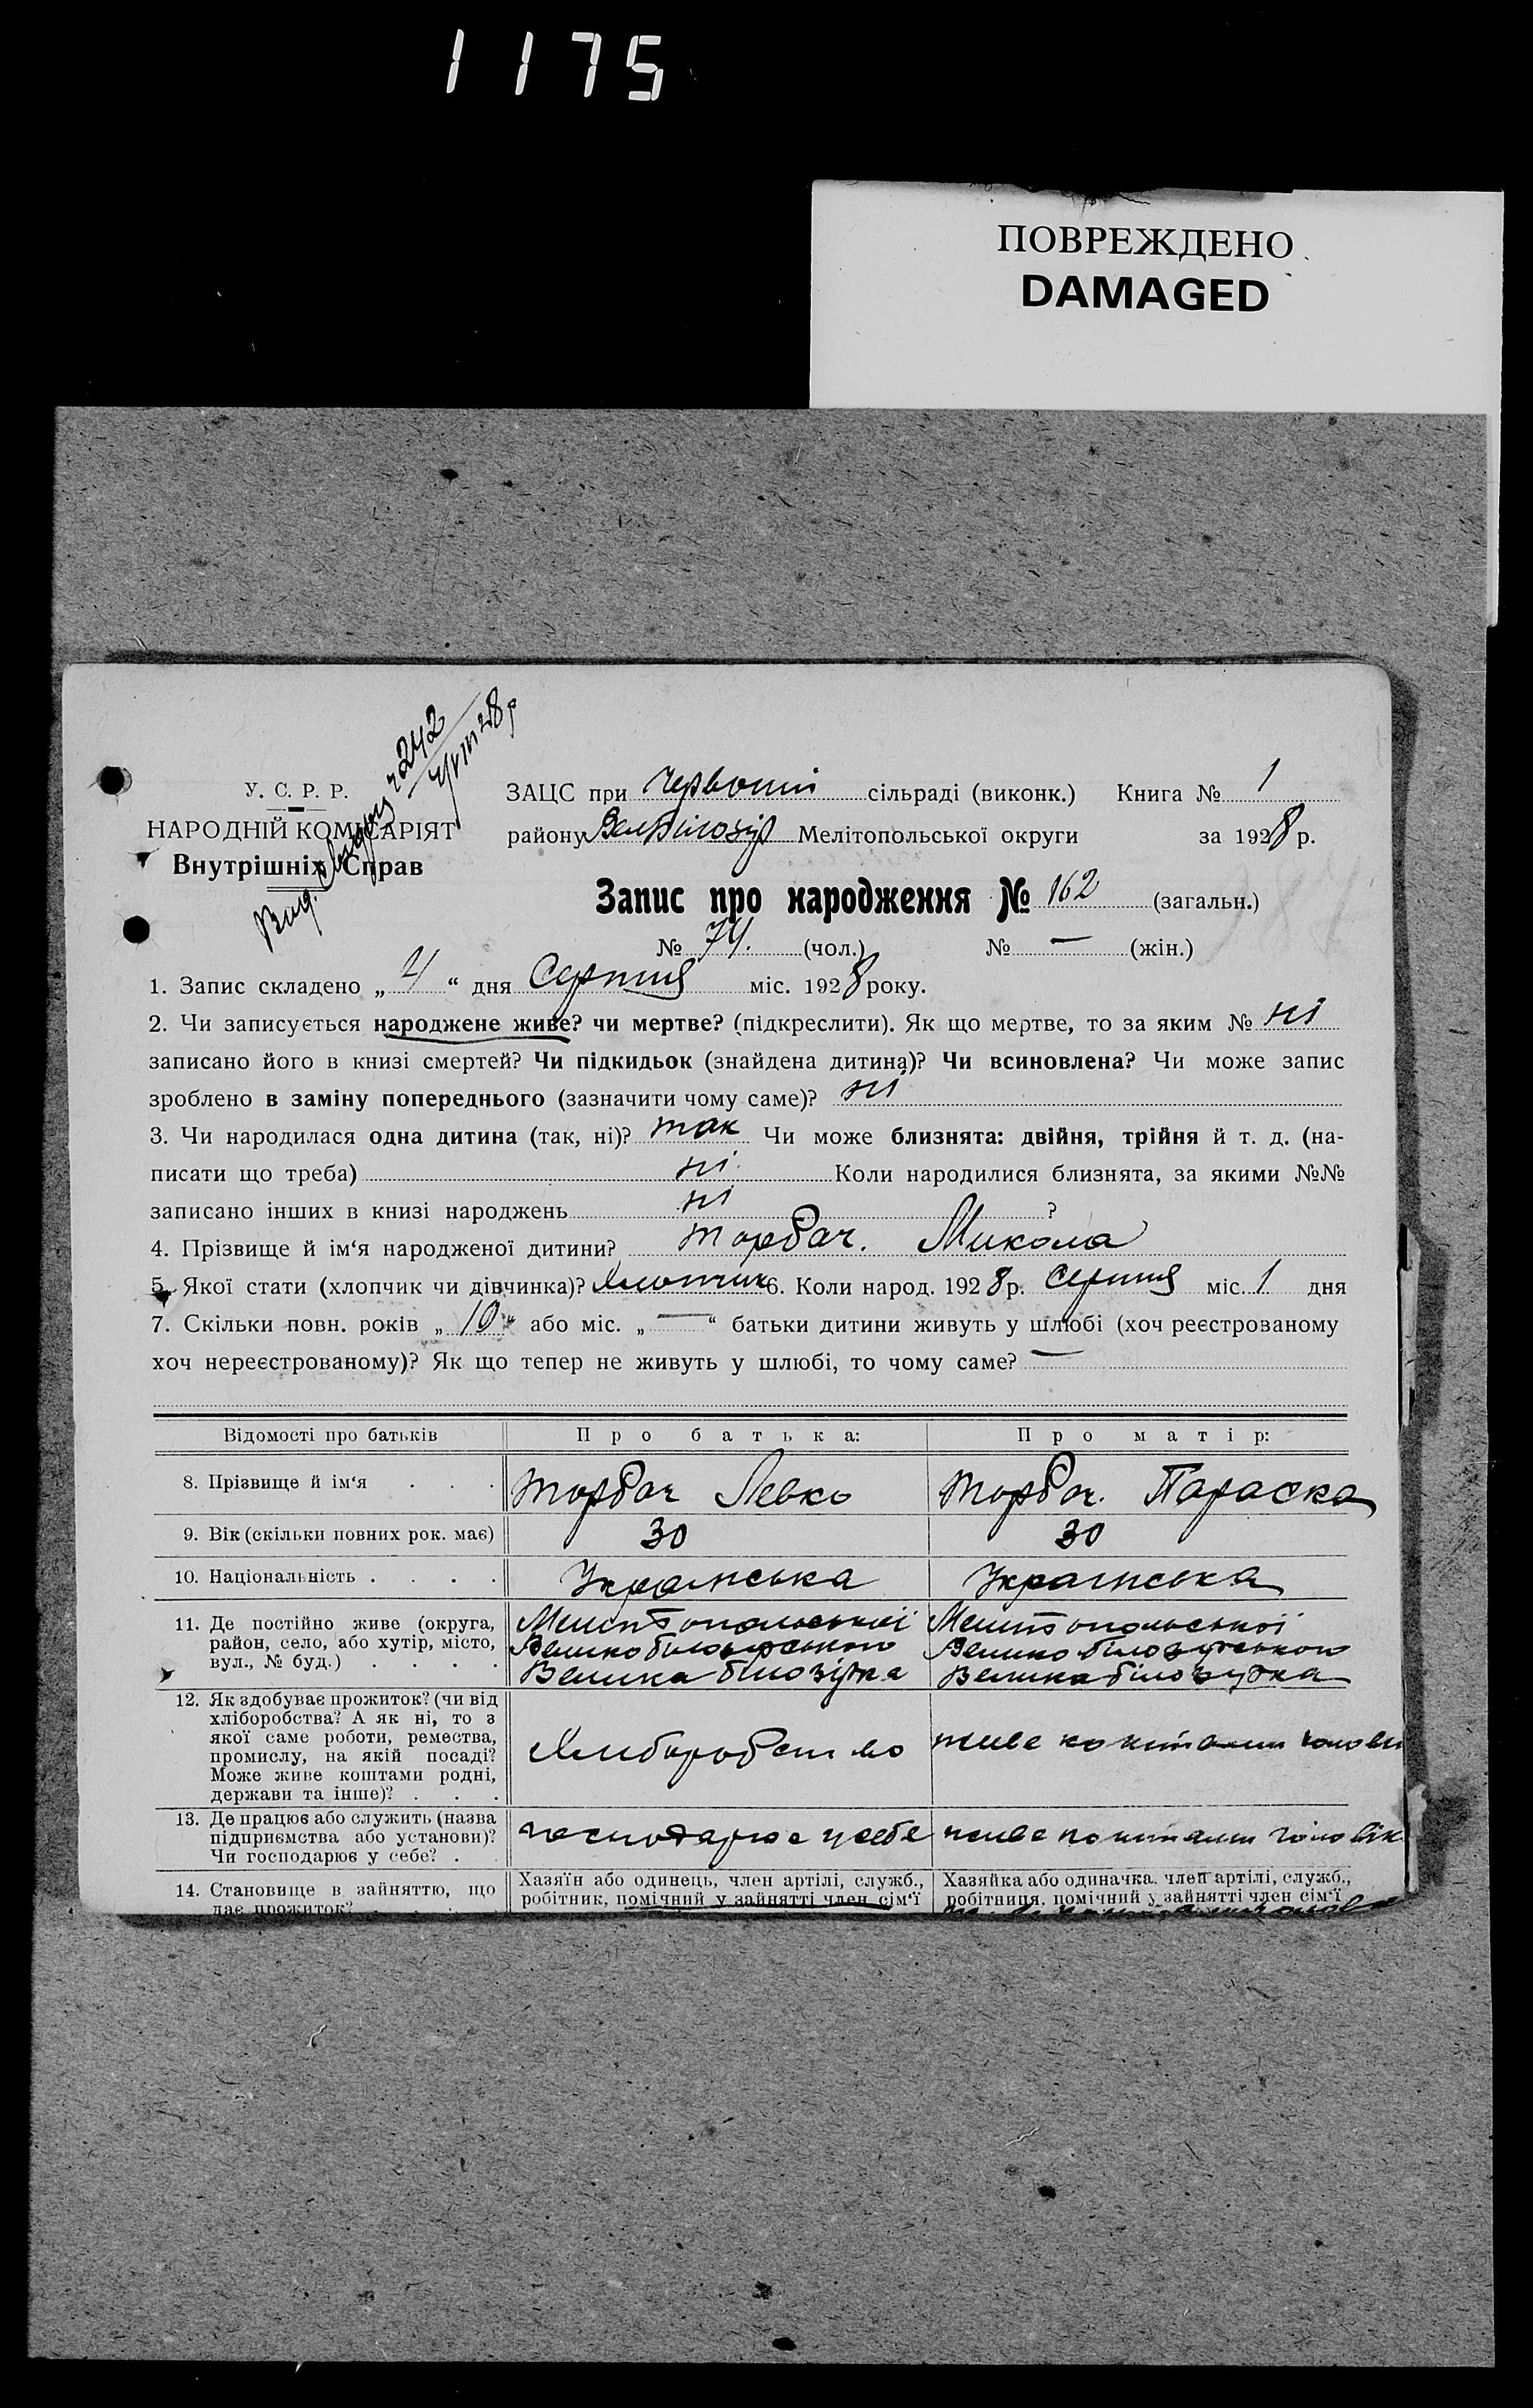 1175
ПОВРЕЖДЕНО
DAMAGED
У. С. Р. Р.
НАРОДНІЙ КОМІСАРІЯТ
Внутрішніх Справ
242
ЗАЦС при Червоній сільраді (виконк.) Книга № 1
району ВелБілозір Мелітопольської округи за 1928 р.
Запис про народження № 162 (загальн.)
№ 74. (чол.) № — (жін.)
1. Запис складено „ 4 “ дня Серпня міс. 1928 року.
2. Чи записується народжене живе? чи мертве? (підкреслити). Як що мертве, то за яким № ні
записано його в книзі смертей? Чи підкидьок (знайдена дитина)? Чи всиновлена? Чи може запис
зроблено в заміну попереднього (зазначити чому саме)? ні
3. Чи народилася одна дитина (так, ні)? так Чи може близнята: двійня, трійня й т. д. (на-
писати що треба) ні. Коли народилися близнята, за якими №№
записано інших в книзі народжень ні ?
4. Прізвище й ім‘я народженої дитини? Торбач. Микола
5. Якої стати (хлопчик чи дівчинка)? Хлопчик 6. Коли народ. 1928 р. Серпня міс. 1 дня
7. Скільки повн. років „ 10 “ або міс. „ — “ батьки дитини живуть у шлюбі (хоч реєстрованому
хоч нереєстрованому)? Як що тепер не живуть у шлюбі, то чому саме? —
Відомості про батьків Про батька: Про матір:
8. Прізвище й ім‘я . . . Торбач Левко Торбач. Параска
9. Вік (скільки повних рок. має) 30 30
10. Національність . . . . Українська Українська
11. Де постійно живе (округа,
район, село, або хутір, місто,
вул., № буд.) . . . .
Мелітопольської
Великобілозірського
Велика білозірка
Мелітопольської
Великобілозірського
Велика білозірка
12. Як здобуває прожиток? (чи від
хліборобства? А як ні, то з
якої саме роботи, ремества,
промислу, на якій посаді?
Може живе коштами родні,
держави та інше)? . . .
Хліборобство
живе коштами
13. Де працює або служить (назва
підприємства або установи)?
Чи господарює у себе? .
господарює у себе
живе коштами чоловік
14. Становище в зайняттю, що
дає прожиток?
Хазяїн або одинець, член артілі, служб.,
робітник, помічний у зайнятті член сім‘ї
Хазяйка або одиначка. член артілі, служб.,
робітниця. помічний у зайнятті член сім‘ї